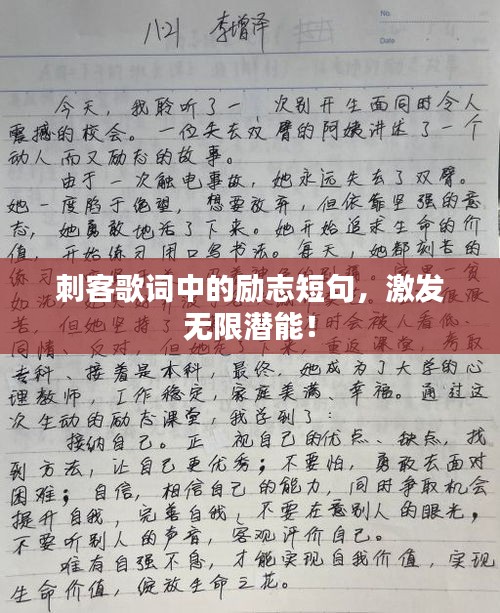 八(2) 李增泽
No.
Date.
今天，我聆听了一次别开生面同时令人
震撼的校会。一位失去双臂的阿姨讲述了一个
动人而又励志的故事。
由于一次触电事故，她永远失去了双臂。
她一度陷于绝望，想要放弃，但依靠坚强的意
志，她勇敢地活了下来。她开始追求生命的价
值，开始练习用口写书法。每天，她都刻苦的
练习
刺客歌词中的励志短句，激发
无限潜能！
如洗
苦，但她坚持了 时会被人看低、
同情、反对，但她 了下来，重返课堂，考取
专科、接着是本科，最终，她成为了大学的心
理教师，工作稳定，家庭美满、幸福。通过这
次生动的励志课堂，我学到了：
接纳自己。正视自己的优点、缺点，找
到方法，让自己更优秀；不要怕，勇敢去面对
困难；自信，相信自己的能力，同时争取机会
提升自我，完善自我，不要在意别人的眼光，
不要听别人的声音，客观评价自己。
唯有自强不息，才能实现自我价值，实现
生命价值，绽放生命之花。